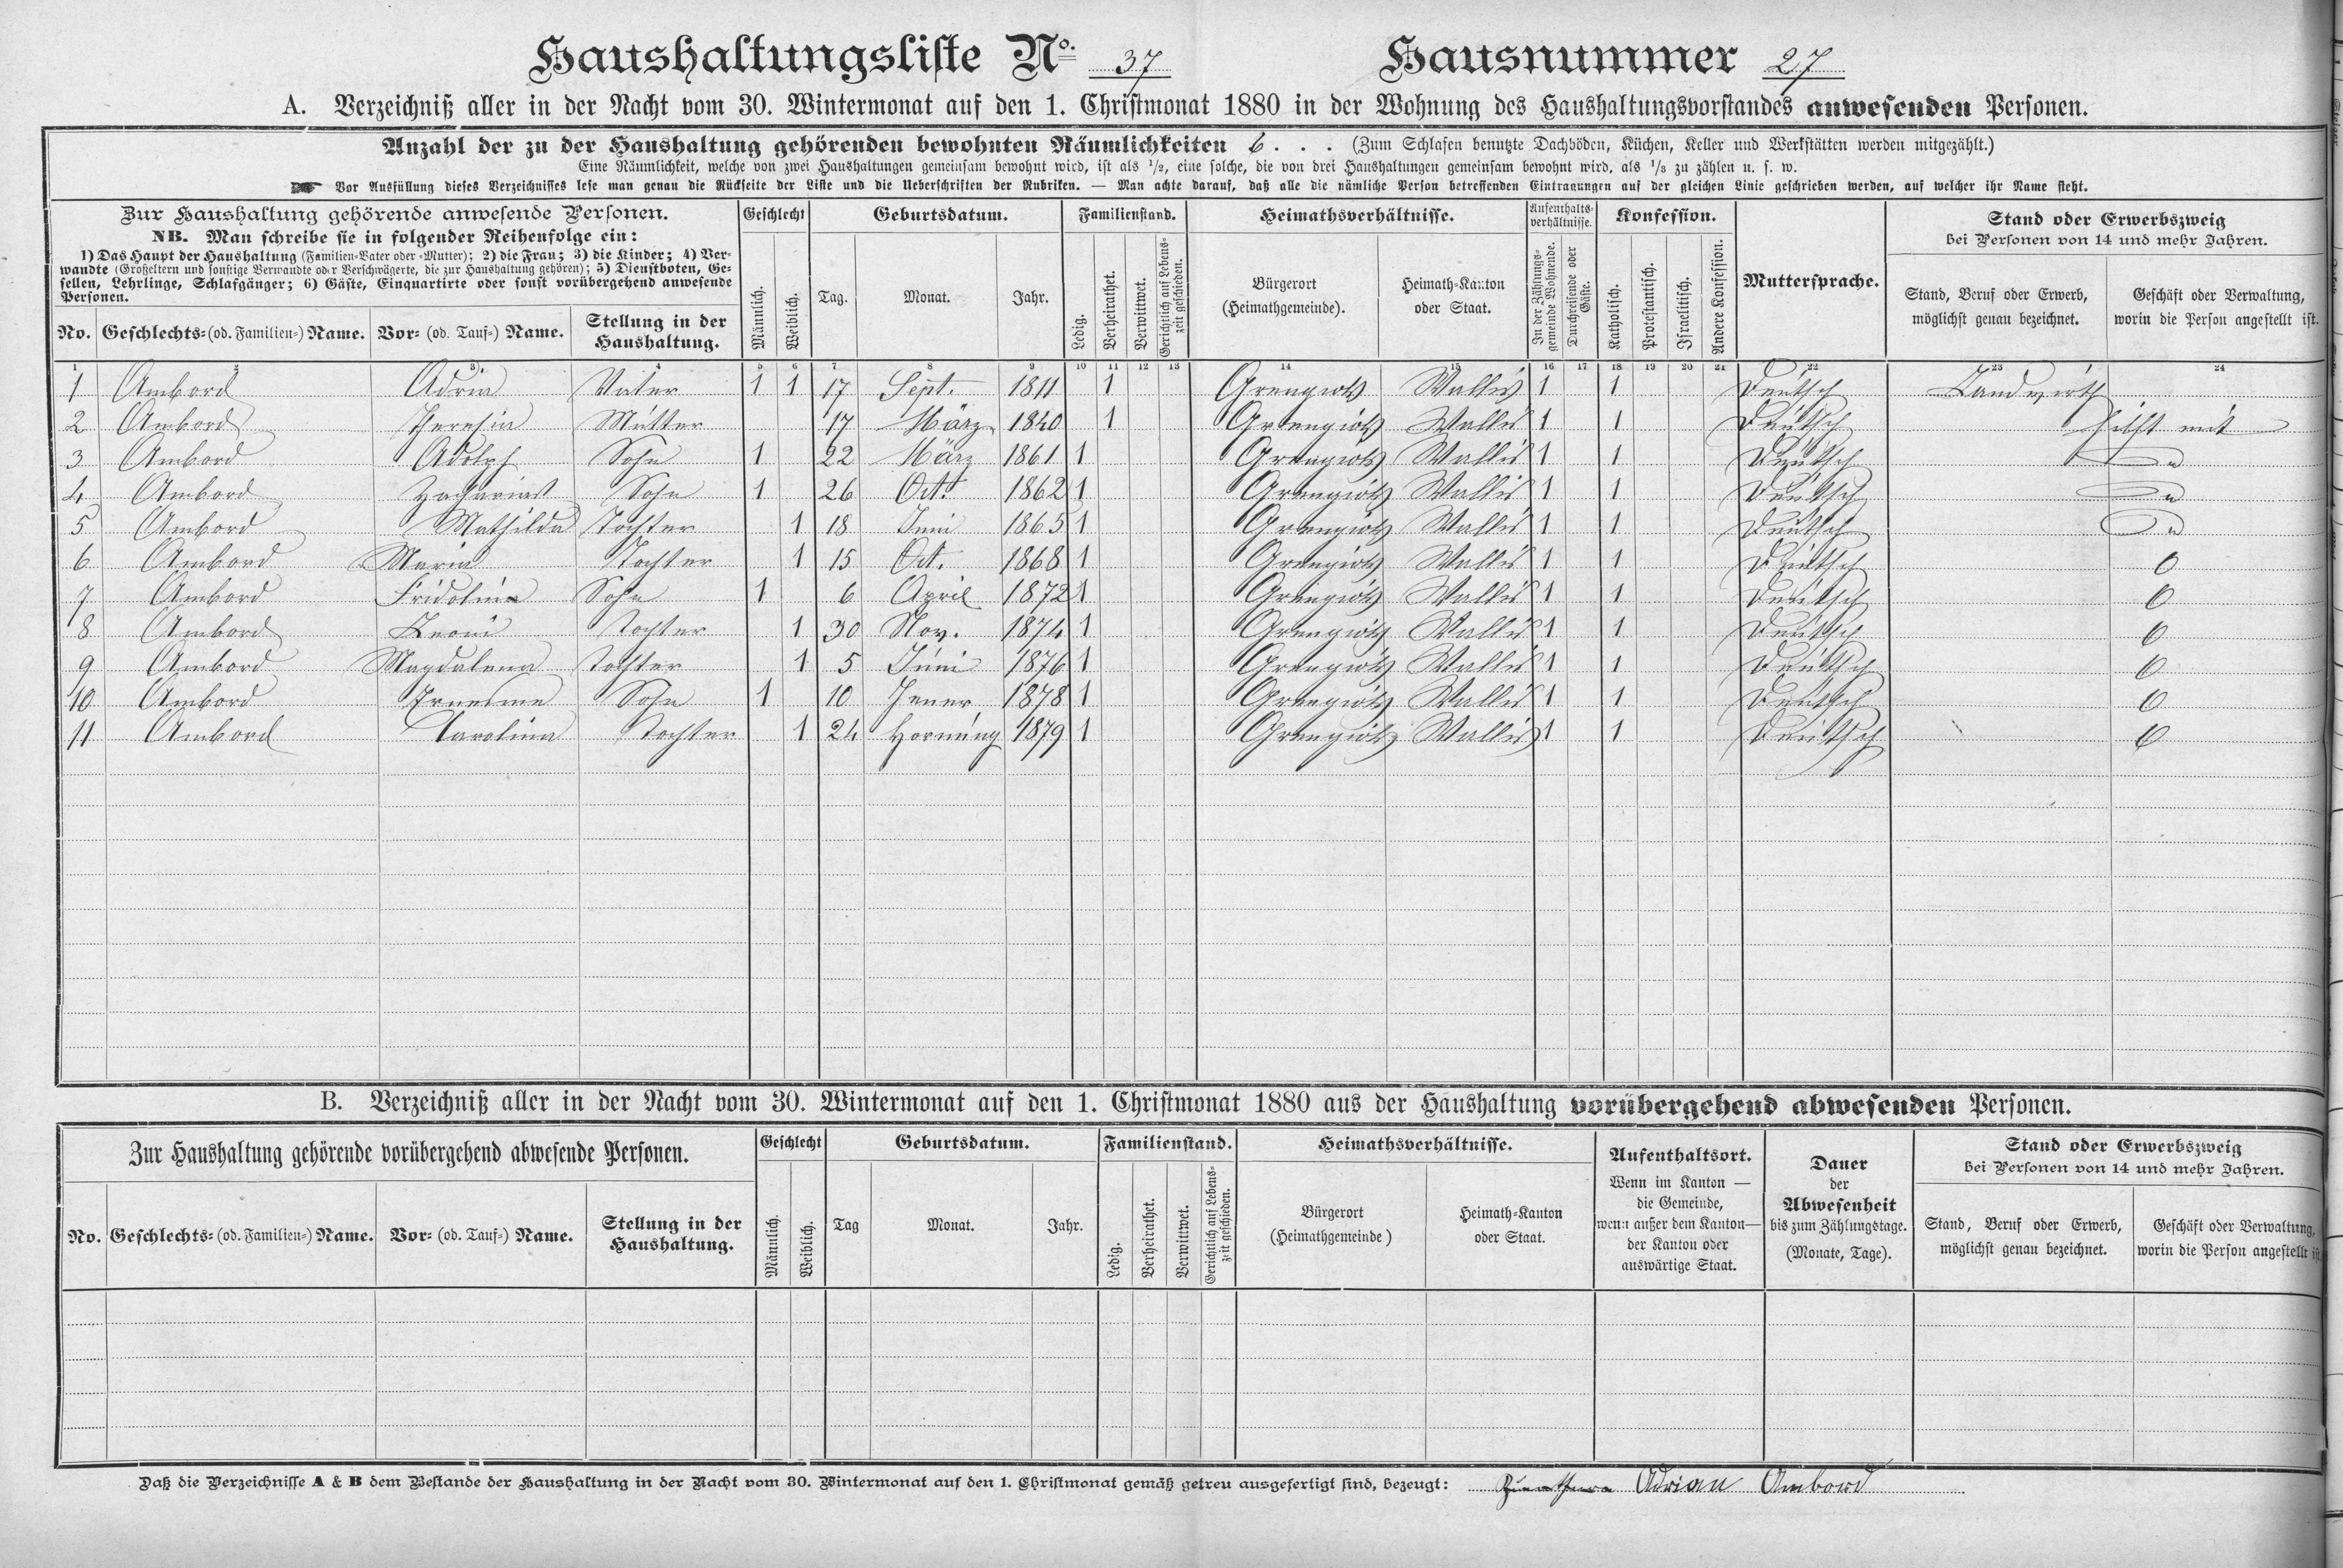 Haushaltungsliste No. 37 Hausnummer 27
A. Verzeichniß aller in der Nacht vom 30. Wintermonat auf den 1. Christmonat 1880 in der Wohnung des Haushaltungsvorstandes anwesenden Personen.
Anzahl der zu der Haushaltung gehörenden bewohnten Räumlichkeiten 6 . . . (Zum Schlafen benutzte Dachböden, Küchen, Keller und Werkstätten werden mitgezählt.)
Eine Räumlichkeit, welche von zwei Haushaltungen gemeinsam bewohnt wird, ist als 1/2, eine solche, die von drei Haushaltungen gemeinsam bewohnt wird, als 1/3 zu zählen u. s. w.
☛ Vor Ausfüllung dieses Verzeichnisses lese man genau die Rückseite der Liste und die Ueberschriften der Rubriken. — Man achte darauf, daß alle die nämliche Person betreffenden Eintragungen auf der gleichen Linie geschrieben werden, auf welcher ihr Name steht.
Zur Haushaltung gehörende anwesende Personen.
NB. Man schreibe sie in folgender Reihenfolge ein:
1) Das Haupt der Haushaltung (Familien-Vater oder -Mutter); 2) die Frau; 3) die Kinder; 4) Ver-
wandte (Großeltern und sonstige Verwandte oder Verschwägerte, die zur Haushaltung gehören); 5) Dienstboten, Ge-
sellen, Lehrlinge, Schlafgänger; 6) Gäste, Einquartirte oder sonst vorübergehend anwesende
Personen.
No. Geschlechts- (od. Familien-) Name. Vor- (od. Tauf-) Name. Stellung in der Haushaltung.
Geschlecht
Männlich. Weiblich.
Geburtsdatum.
Tag. Monat. Jahr.
Familienstand.
Ledig. Verheirathet. Verwittwet. Gerichtlich auf Lebens-
zeit geschieden.
Heimathsverhältnisse.
Bürgerort
(Heimathgemeinde).
Heimath-Kanton
oder Staat.
Aufenthalts-
verhältnisse.
In der Zählungs-
gemeinde Wohnende.
Durchreisende oder
Gäste.
Konfession.
Katholisch. Protestantisch. Israelitisch. Andere Konfession.
Muttersprache.
Stand oder Erwerbszweig
bei Personen von 14 und mehr Jahren.
Stand, Beruf oder Erwerb,
möglichst genau bezeichnet.
Geschäft oder Verwaltung,
worin die Person angestellt ist.
1 2 3 4 5 6 7 8 9 10 11 12 13 14 15 16 17 18 19 20 21 22 23 24
1 Ambord Adria Vater 1 1 17 Sept. 1811 1 Grengiols Wallis 1 1 Deutsch Landwirth
2 Ambord Theresia Mutter 17 März 1840 1 Grengiols Wallis 1 1 Deutsch hilft mit
3 Ambord Adolph Sohn 1 22 März 1861 1 Grengiols Wallis 1 1 Deutsch "
4 Ambord Zacharias Sohn 1 26 Oct. 1862 1 Grengiols Wallis 1 1 Deutsch "
5 Ambord Mathilda Tochter 1 18 Juni 1865 1 Grengiols Wallis 1 1 Deutsch "
6 Ambord Maria Tochter 1 15 Oct. 1868 1 Grengiols Wallis 1 1 Deutsch 0
7 Ambord Fridolina Sohn 1 6 April 1872 1 Grengiols Wallis 1 1 Deutsch 0
8 Ambord Leoni Tochter 1 30 Nov. 1874 1 Grengiols Wallis 1 1 Deutsch 0
9 Ambord Magdalena Tochter 1 5 Juni 1876 1 Grengiols Wallis 1 1 Deutsch 0
10 Ambord Sohn 1 10 Jener 1878 1 Grengiols Wallis 1 1 Deutsch 0
11 Ambord Carolina Tochter 1 24 Hornung 1879 1 Grengiols Wallis 1 1 Deutsch 0
B. Verzeichniß aller in der Nacht vom 30. Wintermonat auf den 1. Christmonat 1880 aus der Haushaltung vorübergehend abwesenden Personen.
Zur Haushaltung gehörende vorübergehend abwesende Personen.
No. Geschlechts- (od. Familien-) Name. Vor- (od. Tauf-) Name. Stellung in der Haushaltung.
Geschlecht
Männlich. Weiblich.
Geburtsdatum.
Tag Monat. Jahr.
Familienstand.
Ledig. Verheirathet. Verwittwet. Gerichtlich auf Lebens-
zeit geschieden.
Heimathsverhältnisse.
Bürgerort
(Heimathgemeinde)
Heimath-Kanton
oder Staat.
Aufenthaltsort.
Wenn im Kanton —
die Gemeinde,
wenn außer dem Kanton—
der Kanton oder
auswärtige Staat.
Dauer
der
Abwesenheit
bis zum Zählungstage.
(Monate, Tage).
Stand oder Erwerbszweig
bei Personen von 14 und mehr Jahren.
Stand, Beruf oder Erwerb,
möglichst genau bezeichnet.
Geschäft oder Verwaltung,
worin die Person angestellt ist
Daß die Verzeichnisse A & B dem Bestande der Haushaltung in der Nacht vom 30. Wintermonat auf den 1. Christmonat gemäß getreu ausgefertigt sind, bezeugt: Adrian Ambord